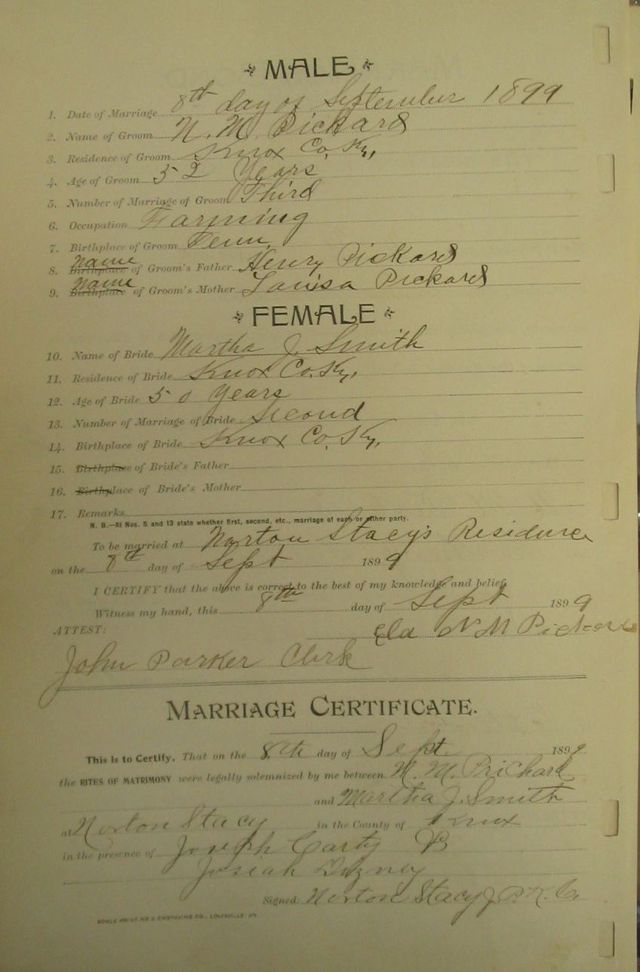 MALE
1. Date of Marriage 8th day of September 1899
2. Name of Groom N. M. Pickard
3. Residence of Groom Knox Co. Ky,
4. Age of Groom 52 Years
5. Number of Marriage of Groom Third
6. Occupation Farming
7. Birthplace of Groom Tenn,
8. Birthplace Name of Groom's Father Henry Pickard
9. Birthplace Name of Groom's Mother Louisa Pickard
FEMALE
10. Name of Bride Martha J. Smith
11. Residence of Bride Knox Co. Ky,
12. Age of Bride 50 Years
13. Number of Marriage of Bride Second
14. Birthplace of Bride Knox Co. Ky,
15. Birthplace of Bride's Father
16. Birthplace of Bride's Mother
17. Remarks
N. B.—At Nos. 5 and 13 state whether first, second, etc., marriage of each or either party.
To be married at Norton Stacy's Residence
on the 8th day of Sept 1899
I CERTIFY that the above is correct to the best of my knowledge and belief.
Witness my hand, this 8th day of Sept 1899
ATTEST: N M Pickard
John Parker Clerk
MARRIAGE CERTIFICATE.
This is to Certify, That on the 8th day of Sept 1899
the RITES OF MATRIMONY were legally solemnized by me between M. M. Prichard
and Martha J. Smith
at Norton Stacy in the County of Knox
in the presence of Joseph Carty
Josiah
Signed Norton Stacy J P K C